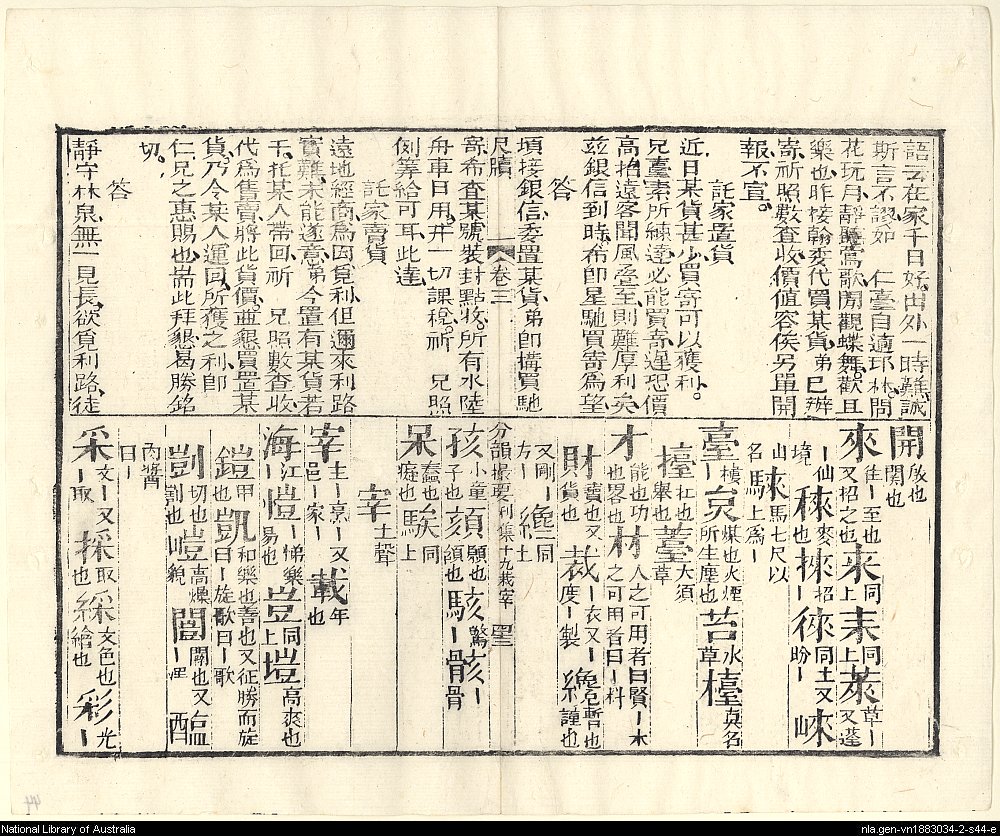 語云在家千日好出外一時難誠
斯言不謬如 仁臺自適耶林問
花玩月靜聽鶯歌閒觀蝶舞歡且
樂也昨接翰矣代買某貨弟已辦
寄祈照數查收價值容俟另單開
報不宣
託家置貨
近日某貨甚少買寄可以獲利
兄臺素所練達必能買寄遲恐價
高抬遠客聞風叠至則難厚利矣
茲銀信到時希即星馳買寄為望
答
項接銀信委置某貨弟即搆買馳
尺牘 卷三
寄希查某號裝封點收所有水陸
舟車日用并一切課稅祈 兄照
例筭給可耳此達
託家賣貨
遠地經商為因覓利但邇來利路
實難未能遂意弟今置有某貨若
干托某人帶回祈 兄照數查收
代為售賣將此貨價並懇買置某
貨乃令某人運回所獲之利即
仁兄之惠賜也耑此拜懇曷勝銘
切
答
靜守林泉無一見長欲覓利路徒
開 放也 闢也
來 往丨至也 又招之也 來 同上 耒 同上 萊 草丨 又蓬
丨仙 境 秾 麥也 捸 招丨 徠 同土又 盼丨 崍
山名 騋 馬七尺以上為丨
臺 樓丨 炱 煤也火煙所生塵也 苔 水草 檯 真名
擡 扛也 舉也 薹 大須草
才 能也功也畧也 材 人之可用者曰賢丨木之可用者曰丨料
財 寶也又貨也 裁 丨衣又丨度丨製 纔 暫也 僅也
又剛丨方丨 纔 同土
分韻撮要利集十九栽宰 四三
孩 小童 子也 頦 頤也 頷也 駭 驚丨 骸 丨骨
呆 蠢也 癡也 騃 同上
宰 土聲
宰 主丨烹丨又邑丨家丨 載 年也
海 江丨 愷 悌樂易也 豈 同上 塏 高爽也
鎧 甲也 凱 和樂也善也又征勝而旋曰丨旋歌曰丨歌
剴 切也 割也 嵦 高燥貌 闓 闢也又丨 醢
肉醬曰丨
采 文丨又丨取 採 取也 綵 文色也 繪也 彩 光丨
National Library of Australia
nla.gen-vn1883034-2-s44-e